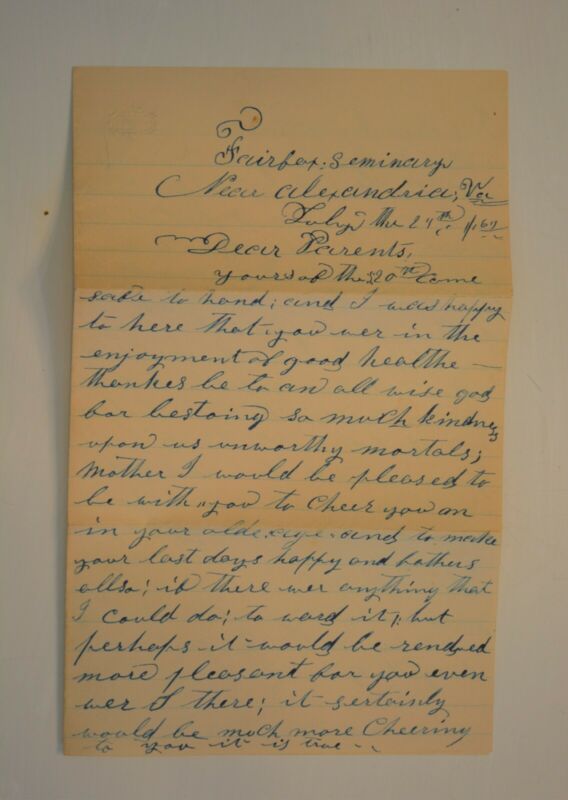 Fairfax; Seminary
Near alexandria; Va
July the 24th /62
Dear Parents,
yours of the 20th came
safe to hand; and I was happy
to here that you wer in the
enjoyment of good healthe —
thankes be to an all wise god
for bestoing so much kindness
upon us unworthy mortals;
Mother I would be pleased to
be with you to Cheer you an
in your olde age and to make
your last days happy and fathers
allso; if there wer anything that
I could do; to ward it; but
perhaps it would be rendued
more pleasant for you even
wer I there; it sertainly
would be much more Cheering
to you it is true